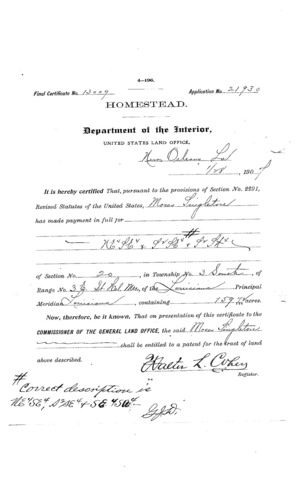 4—196.
Final Certificate No. 13009 Application No. 21930
HOMESTEAD.
Department of the Interior,
UNITED STATES LAND OFFICE,
New Orleans La
1/28, 1907
It is hereby certified That, pursuant to the provisions of Section No. 2291,
Revised Statutes of the United States, Moses Singleton
has made payment in full for
#
of Section No. 20, in Township No. 3 South, of
Range No. 3 of the Louisiana Principal
Meridian Louisiana, containing 159 acres.
Now, therefore, be it known, That on presentation of this certificate to the
COMMISSIONER OF THE GENERAL LAND OFFICE, the said Moses Singleton
shall be entitled to a patent for the tract of land
above described.
Walter L. Cohen
Register.
# Correct description is
NE¼SE¼, S½SE¼ & SE¼SW¼